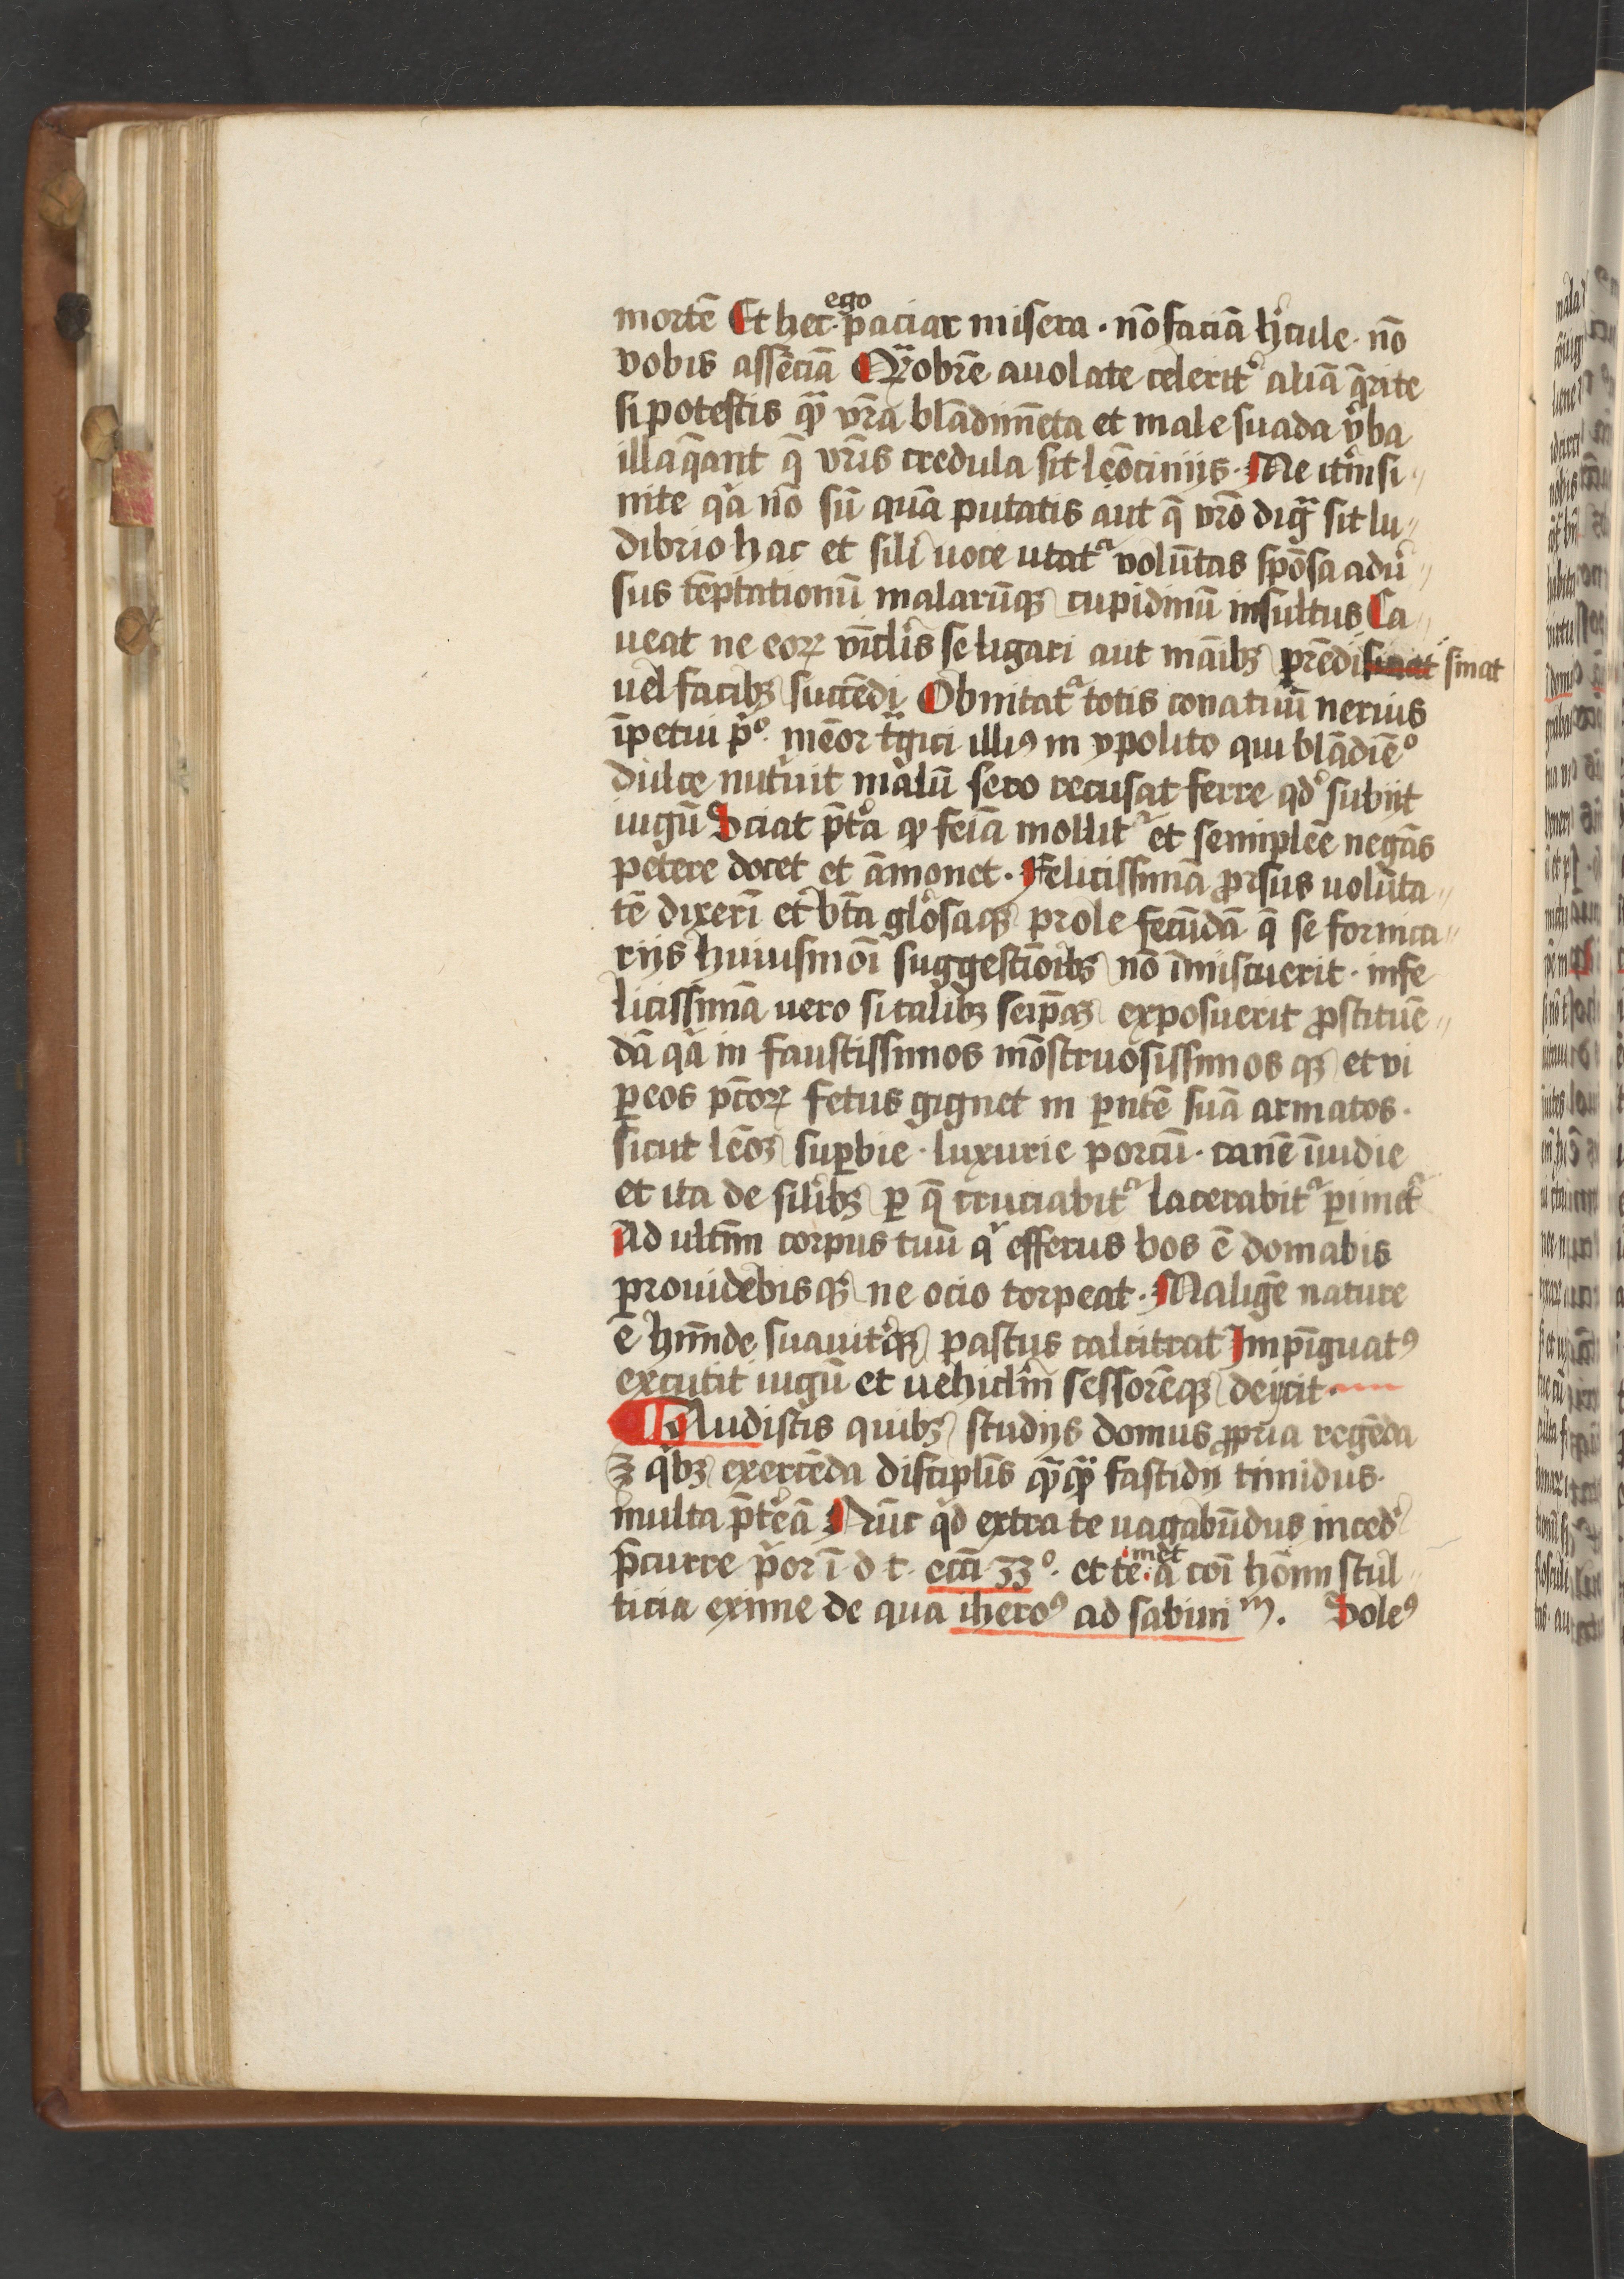 mortē Et hec ego paciar misera · nō faciā h̓cule · nō
vobis assēciā Q̄obrē auolate celerit̓ aliā q̄rite
si potestis quā vr̄a blādimēta et male suada v̓ba
illaq̄ant q̄ vr̄is credula sit leōciniis · Me it̓m si
nite q̓a nō sū quā putatis aut q̄ vr̄o diḡ sit lu〃
dibrio hac et sili uoce utat᷑ volūtas spōsa adu̓〃
sus tēptationū malarūqꝫ cupidinū insultus Ca〃
ueat ne eoꝝ vīclis se ligari aut māibꝫ prēdi sinat
uel facibꝫ succēdi Obnitat᷑ totis conatuū neruis
īpetui p̓º mēor tᷓgici illiꝰ in ypolito qui blādiēº
dulce nut̓uit malū sero recusat ferre qd̓ subiit
iugū Sciat p̄t̓a ꝙ feiā mollit᷑ et semiplēe negās
petere docet et āmonet · Felicissimā ꝓrsus uolūta〃
tē dixeri et bt̄a gl̓osaqꝫ prole fecūdā q̄ se fornica〃
riis huiusmōi suggestiōibꝫ nō īmiscuerit · infe
licissimā uero si talibꝫ seip̄aꝫ exposuerit ꝓstituē〃
dā q̓a in faustissimos mōstruosissimos qꝫ et vi
ꝑeos pc̄oꝝ fetus gignet in ꝑntē suā armatos ·
sicut leōꝫ suꝑbie · luxurie porcū · canē īuidie
et ita de sil̓ibꝫ ꝑ q̄ cruciabit᷑ lacerabit᷑ ꝑimet᷑
Ad ultim̄ corpus tuū q̓ efferus bos ē domabis
prouidebisqꝫ ne ocio torpeat · Maligē nature
ē hm̄nde suauit̓qꝫ pastus calcitrat Impīguatꝰ
excutit iugū et uehiclm̄ sessorēqꝫ deycit ·
Audistis quibꝫ studiis domus ꝓpria regēda
ꝫ q̓bꝫ exercēda disciplis q̄q̄ fastidii timidus ·
multa p̄t̓eā Nūc q̓d extra te uagabūdus inced̓
p̄curre p̓or ī d t · ecc̄i 33º · et te met a cōi hōim stul〃
ticia exime de qua iheroꝰ ad sabini m̄ · Soleꝰ